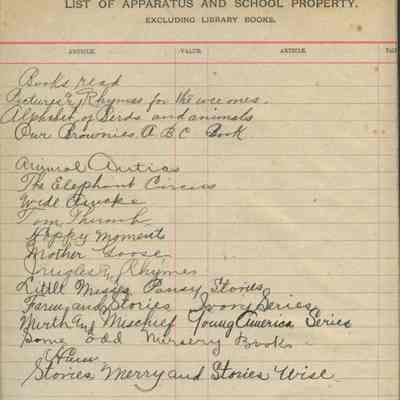 LIST OF APPARATUS AND SCHOOL PROPERTY,
EXCLUDING LIBRARY BOOKS.
ARTICLE. VALUE. ARTICLE.
Books read
Pictures & Rhymes for the wee ones.
Alphabet of Birds and animals
Our Brownies A B C Book
Animal Antics
The Elephant Circus
Wide Awake
Tom Thumb
Happy Moments
Mother Goose
Jingles & Rhymes
Little Missie's Pansy Stories
Farm and Stories Ivory Series
Mirth and Mischief Young America Series
Some odd Nursery Books
Stories Merry and Stories Wise